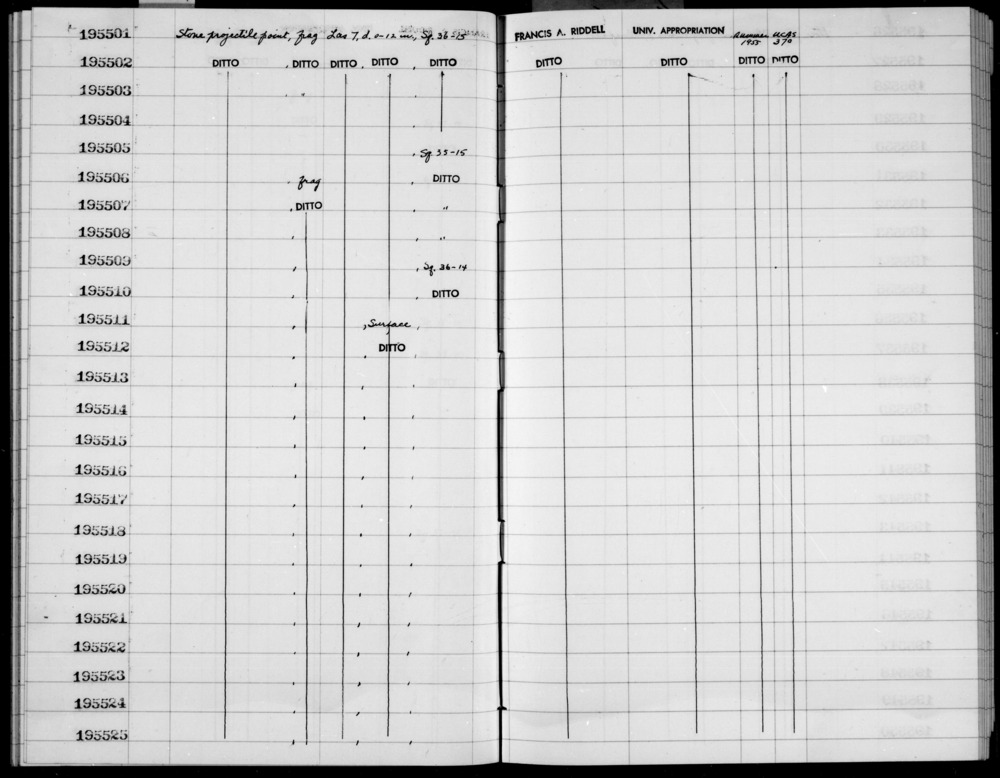 195501 Stone projectile point, frag Las 7, d. 0-12 in., Sq. 36-15 FRANCIS A. RIDDELL UNIV. APPROPRIATION Summer 1955 UCAS 370
195502 DITTO , DITTO DITTO , DITTO , DITTO DITTO DITTO DITTO DITTO
195503
195504
195505 , Sq. 35-15
195506 , frag DITTO
195507 , DITTO , "
195508 , , "
195509 , , Sq. 36-14
195510 , , DITTO
195511 , , Surface ,
195512 , , DITTO ,
195513 , , ,
195514 , , ,
195515 , , ,
195516 , , ,
195517 , , ,
195518 , , ,
195519 , , ,
195520 , , ,
195521 , , ,
195522 , , ,
195523 , , ,
195524 , , ,
195525 , , ,